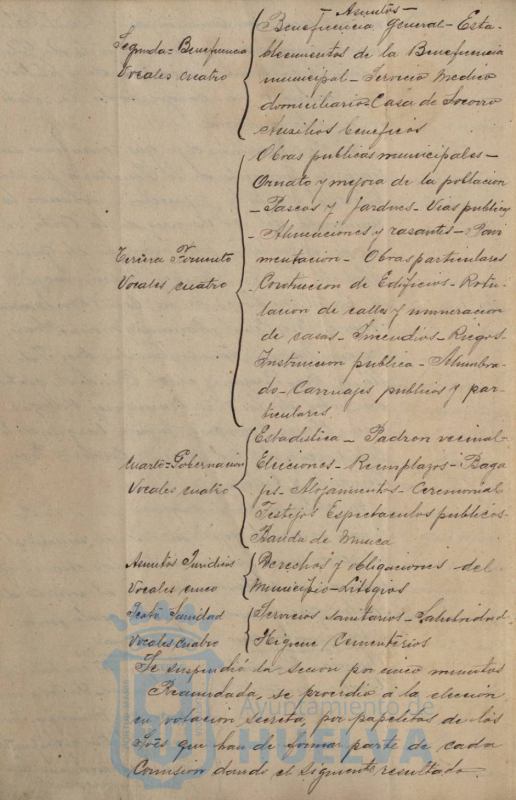 - Asuntos -
Segunda = Beneficencia
Vocales cuatro
Beneficencia general - Esta-
blecimientos de la Beneficencia
municipal - Servicio Medico
domiciliario - Casa de Socorro
Auxilios beneficos
Tercera Fomento
Vocales cuatro
Obras publicas municipales -
Ornato y mejora de la poblacion
- Paseos y Jardines - Vias publicas
- Alineaciones y rasantes - Pavi
mentacion - Obras particulares
- Contrucion de Edificios - Rotu-
lacion de calles y numeracion
de casas - Incendios - Riegos -
Instrucion publica - Alumbra-
do - Carruajes publicos y par-
ticulares.
Cuarta = Gobernacion
Vocales cuatro
Estadistica - Padron vecinal -
Eleiciones - Reemplazos - Baga
jes - Alojamientos - Ceremonial
Festejos Espectaculos publicos -
Banda de Musica
Asuntos Juridicos
Vocales cinco
Derechos y obligaciones del
Municipio - Litigios
Sanidad
Vocales cuatro
Servicios sanitarios - Salubridad -
Higiene Cementerios
Se suspendió la sesion por cinco minutos
Reanudada, se procedió á la elección
en votacion secreta, por papeletas de los
Sres que han de formar parte de cada
Comision dando el siguiente resultado.
Ayuntamiento de
HUELVA